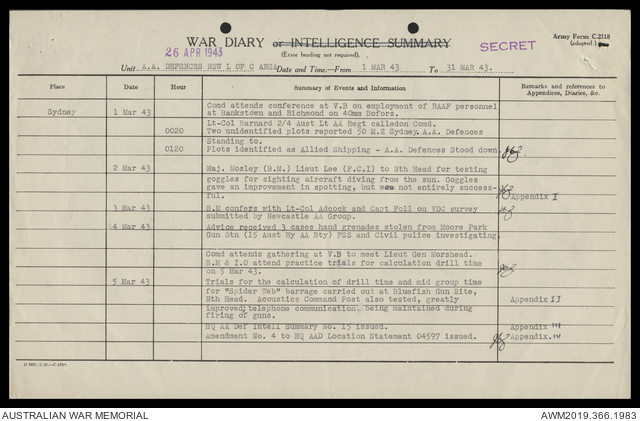 WAR DIARY or INTELLIGENCE SUMMARY
(Erase heading not required).
26 APR 1943
SECRET
Army Form C.2118
(adapted.)
Unit A.A. DEFENCES NSW L OF C AREA Date and Time.—From 1 MAR 43 To 31 MAR 43.
Place Date Hour Summary of Events and Information Remarks and references to Appendices, Diaries, &c.
Sydney 1 Mar 43 Comd attends conference at V.B on employment of RAAF personnel
at Bankstown and Richmond on 40mm Bofors.
Lt-Col Barnard 2/4 Aust Lt AA Regt calledon Comd.
0020 Two unidentified plots reported 50 M.E Sydney. A.A. Defences
Standing to.
0120 Plots identified as Allied Shipping - A.A. Defences Stood down.
2 Mar 43 Maj. Mosley (B.M.) Lieut Lee (F.C.I) to Nth Head for testing
goggles for sighting aircraft diving from the sun. Goggles
gave an improvement in spotting, but were not entirely success-
ful. Appendix I
3 Mar 43 B.M confers with Lt-Col Adcock and Capt Foll on VDC survey
submitted by Newcastle AA Group.
4 Mar 43 Advice received 3 cases hand grenades stolen from Moore Park
Gun Stn (15 Aust Hy AA Bty) FSS and Civil police investigating.
Comd attends gathering at V.B to meet Lieut Gen Morshead.
B.M & I.O attend practice trials for calculation drill time
on 5 Mar 43.
5 Mar 43 Trials for the calculation of drill time and mid group time
for "Spider Web" barrage carried out at Bluefish Gun Site,
Nth Head. Acoustics Command Post also tested, greatly Appendix II
improved telephone communication. being maintained during
firing of guns.
HQ AA Def Intell Summary No. 15 issued. Appendix III
Amendment No. 4 to HQ AAD Location Statement 04597 issued. Appendix IV
AUSTRALIAN WAR MEMORIAL
AWM2019.366.1983